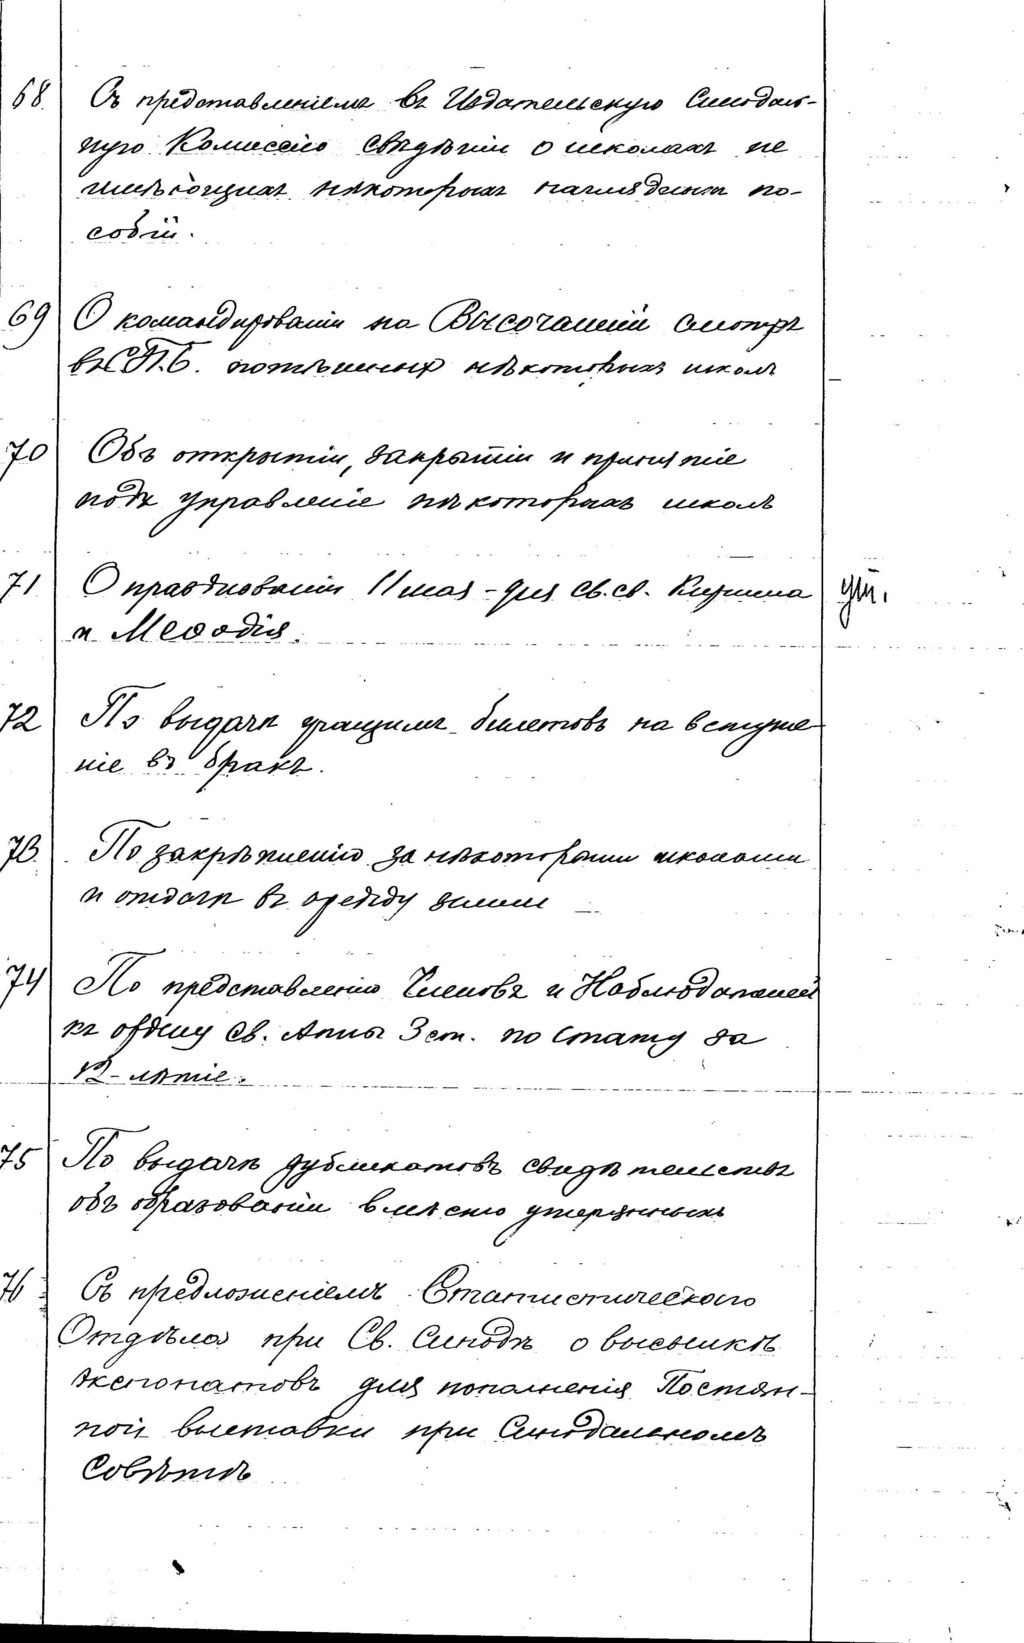 68. Съ представленіемъ въ Издательскую Синодаль-
ную Комиссію свѣдѣній о школахъ не
имѣющихъ нѣкоторыхъ наглядныхъ по-
собій.
69 О командированіи на Высочайшій смотръ
въ СПБ. потѣшныхъ нѣкоторыхъ школъ
70 Объ открытіи, закрытіи и принятіе
подъ управленіе нѣкоторыхъ школъ
71 О празднованіи 11 мая - дня св.св. Кирилла
и Меѳодія.
72 По выдачѣ учащимъ билетовъ на вступле
ніе въ бракъ.
73. По закрѣпленію за нѣкоторыми школами
и отдачѣ въ аренду земли
74 По представленію Членовъ и Наблюдателей
къ ордену Св. Анны 3 ст. по статуту за
12-лѣтіе.
75 По выдачѣ дубликатовъ свидѣтельствъ
объ образованіи вмѣсто утерянныхъ
76 Съ предложеніемъ Статистическаго
Отдѣла при Св. Синодѣ о высылкѣ
экспонатовъ для пополненія Постоян-
ной выставки при Синодальномъ
Совѣтѣ